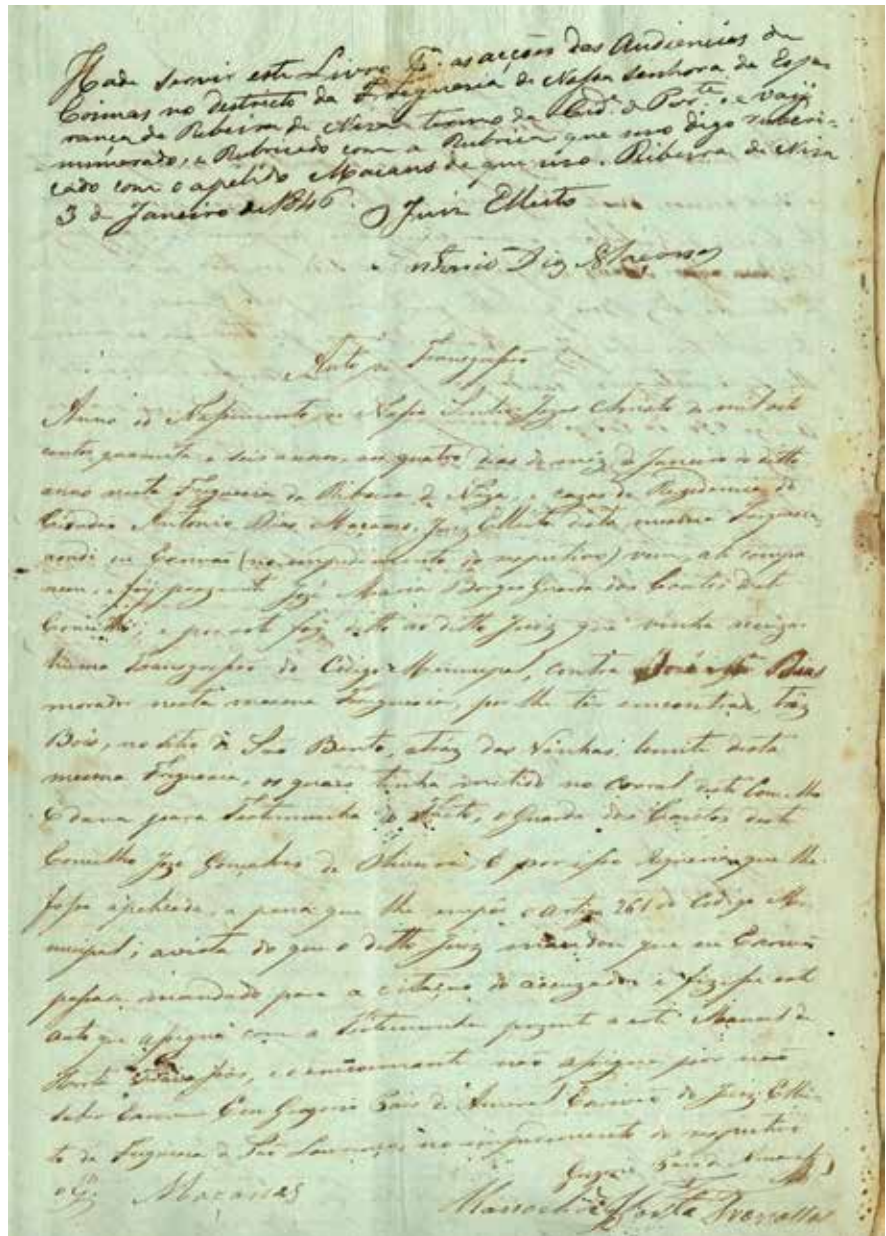 Hade servir este Livro Pª. as acções das Audiencias de
Coimas no destricto da Freigueria de Nossa Senhora da Espe-
rança da Ribeira de Niza termo da Cid.e de Port.e e vaij
numerado, e Rubricado com a Rubrica que uso digo rubri-
cado com o apelido Maçans de que uso. Ribeira de Niza
3 de Janeiro de 1846.
O Juiz Elleito
Antonio Dias
Auto de Transgressão
Anno do Nassimento de Nosso Jezus Christo de mil oito
centos quarenta e seis annos, aos quatro dias do mez de Janeiro do ditto
anno nesta Freguezia da Ribeira de Niza, e cazas da Rezidencia do
Cidadão Antonio Dias Maçans, Juiz Elleito desta mesma Freguezia,
aonde eu Escrivão (no empedimento do respectivo) vim, ahi compa
receu, e foi prezente José Maria Borges Guarda dos Campos deste
Concelho, e por este foi ditto ao ditto Juiz que vinha acuzar
huma Transgressão do Codigo Municipal, contra José
morador nesta mesma Freguezia, por lhe ter encontrado trez
Bois, no sitio de São Bento, atraz das Vinhas, lemite desta
mesma Freguezia, os quaes tinha metido no corral deste Con.lho
E dava para Testemunha do facto, o Guarda dos Campos deste
Concelho Joze Gonçalves de Oliveira, E por isso requeria que lhe
fosse aplicada, a pena que lhe empõe o artigo 261 do Codigo Mu
nicipal; avista do que o ditto Juiz mandou que eu Escrivão
passase mandado para a citação do acuzado e fizesse este
auto que assignou com a Testemunha prezente a este Manoel da
Horta não assignou por não
saber Escrever Eu Gregorio de Amaral Escrivão do Juiz Ellei-
to da Freguezia de São Lourenço no impedimento do respectivo
Gregorio Amaral
Maçans
Manoel da Horta